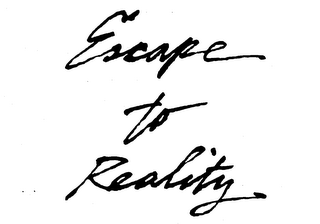 Escape
to
Reality